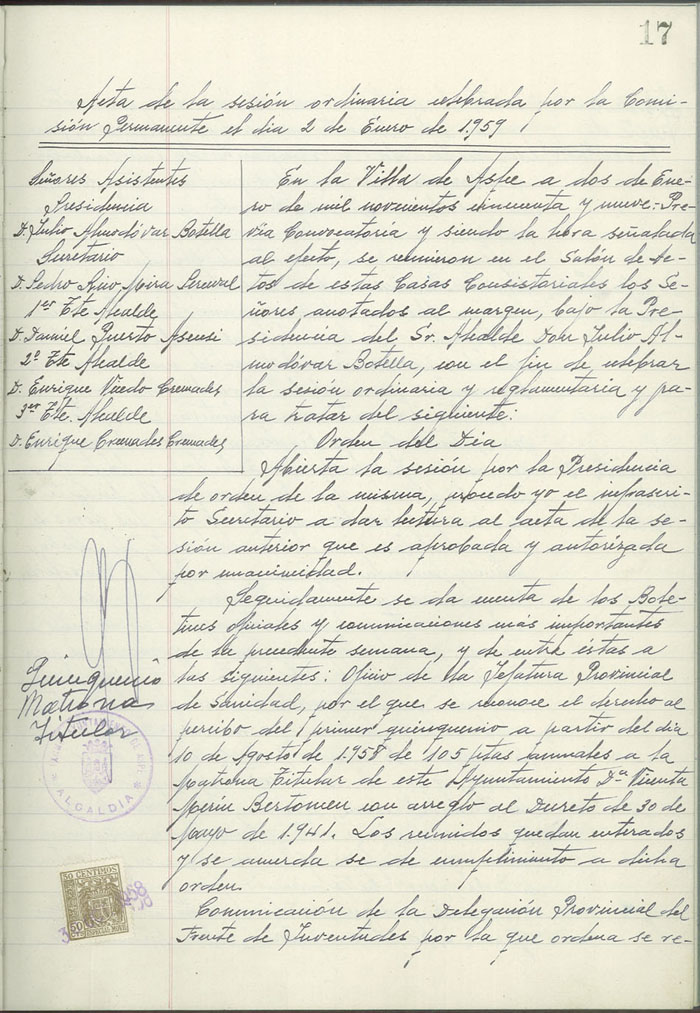 17
Acta de la sesión ordinaria celebrada por la Comi-
sión Permanente el dia 2 de Enero de 1.959
Señores Asistentes
Presidencia
D. Julio Almodóvar Botella
Secretario
D. Pedro Mira
1er Tte Alcalde
D. Daniel Puerto Asensi
2º Tte Alcalde
D. Enrique Vicedo Cremades
3er Tte. Alcalde
D. Enrique Cremades Cremades
En la Villa de Aspe a dos de Ene-
ro de mil novecientos cincuenta y nueve.- Pre-
via Convocatoria y siendo la hora señalada
al efecto, se reunieron en el Salón de Ac-
tos de estas Casas Consistoriales los Se-
ñores anotados al margen, bajo la Pre-
sidencia del Sr. Alcalde Don Julio Al-
modóvar Botella, con el fin de celebrar
la sesión ordinaria y reglamentaria y pa-
ra tratar del siguiente:
Orden del Dia
Abierta la sesión por la Presidencia
de orden de la misma, procedo yo el infrascri-
to Secretario a dar lectura al acta de la se-
sión anterior que es aprobada y autorizada
por unanimidad.
Seguidamente se da cuenta de los Bole-
tines oficiales y comunicaciones más importantes
de la precedente semana, y de entre éstas a
las siguientes: Oficio de la Jefatura Provincial
de Sanidad, por el que se reconoce el derecho al
percibo del primer quinquenio a partir del dia
10 de Agosto de 1.958 de 105 ptas anuales a la
Matrona Titular de este Ayuntamiento Dª Vicenta
Bertomeu con arreglo al Decreto de 30 de
Mayo de 1.941. Los reunidos quedan enterados
y se acuerda se de cumplimiento a dicha
orden.
Comunicación de la Delegación Provincial del
Frente de Juventudes por la que ordena se re-
Quinquenio
Matrona
Titular
ALCALDIA
50 CENTIMOS
50
ESPECIAL MOVIL